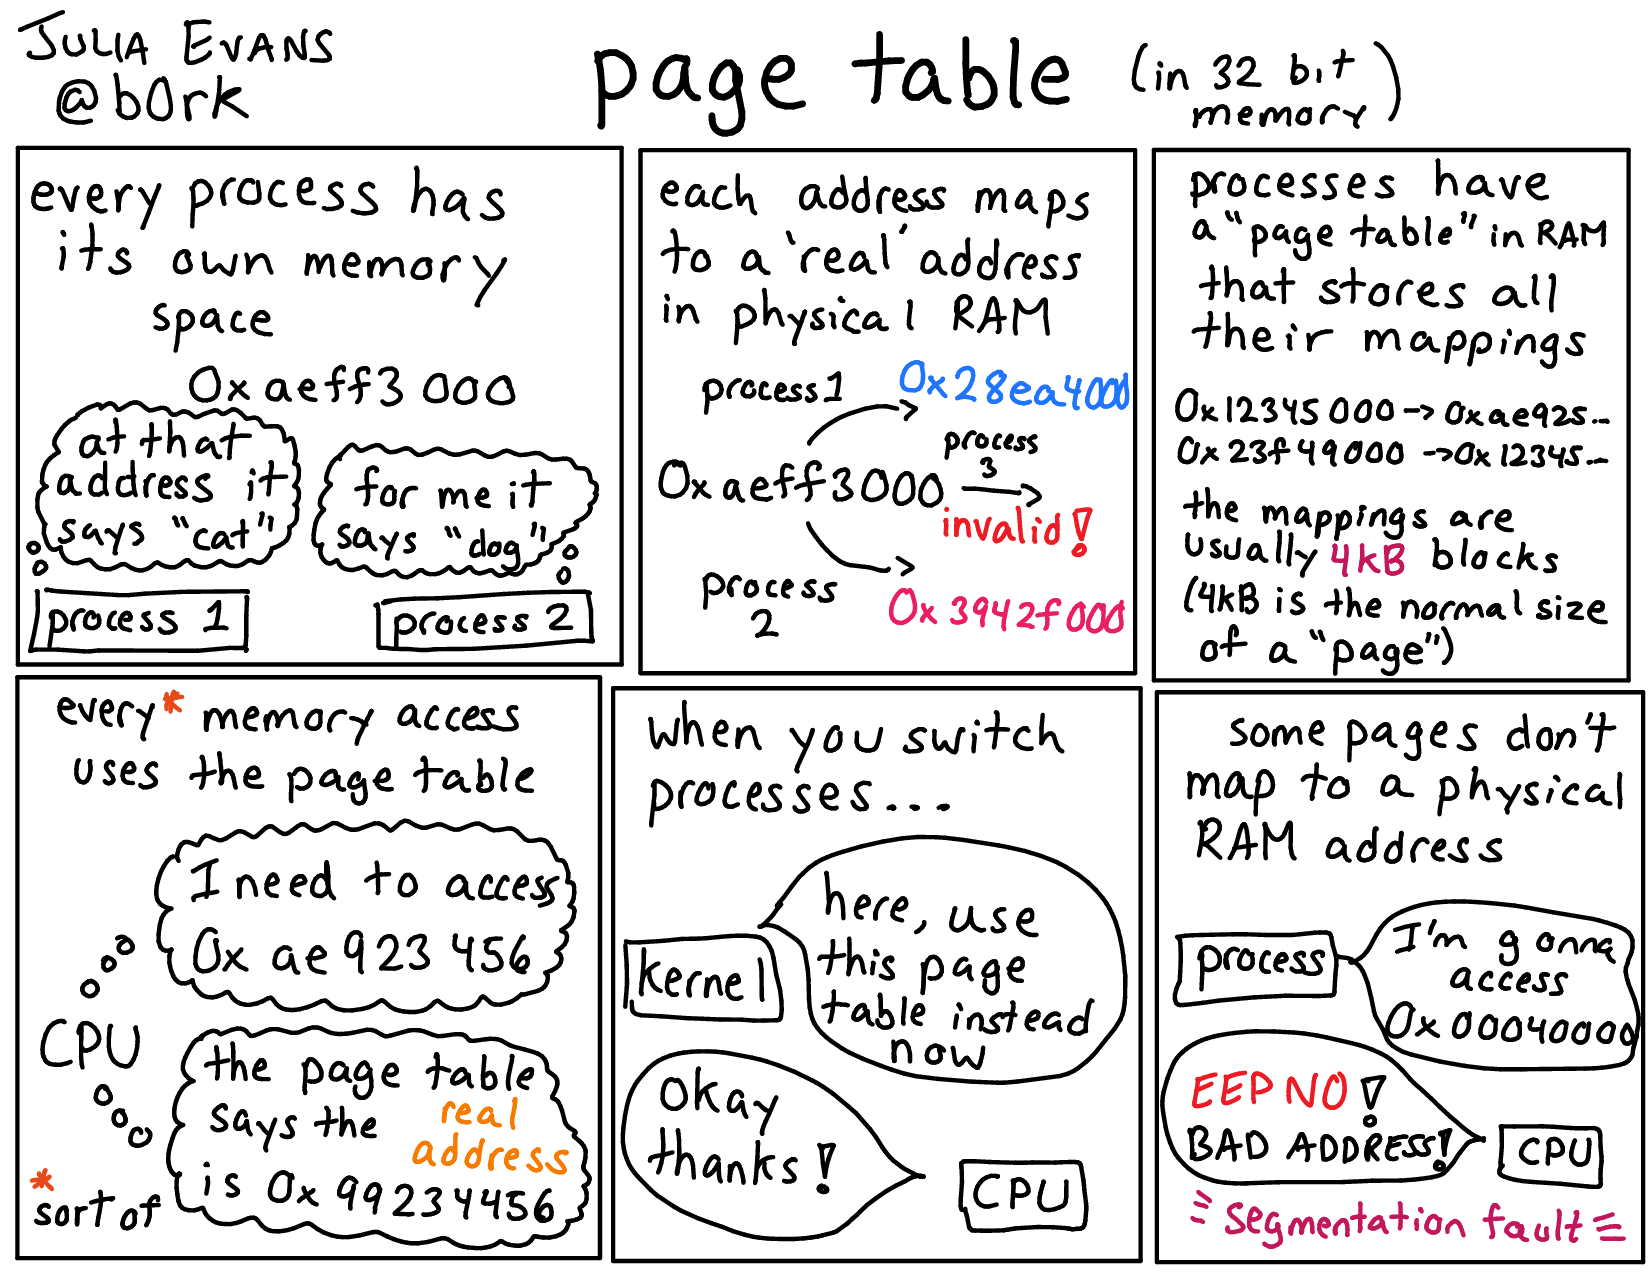 JULIA EVANS
@b0rk
page table (in 32 bit
memory)
every process has
its own memory
space
0xaeff3000
at that
address it
says "cat"
for me it
says "dog"
process 1
process 2
each address maps
to a 'real' address
in physical RAM
process 1
0x28ea4000
0xaeff3000
process
3
invalid!
process
2
0x3942f000
processes have
a "page table" in RAM
that stores all
their mappings
0x12345000 → 0xae925...
0x23f49000 → 0x12345...
the mappings are
usually 4kB blocks
(4kB is the normal size
of a "page")
every* memory access
uses the page table
I need to access
0xae923456
CPU
the page table
says the real
address
is 0x99234456
*
sort of
when you switch
processes...
kernel
here, use
this page
table instead
now
okay
thanks!
CPU
some pages don't
map to a physical
RAM address
process
I'm gonna
access
0x00040000
EEP NO!
BAD ADDRESS!
CPU
segmentation fault